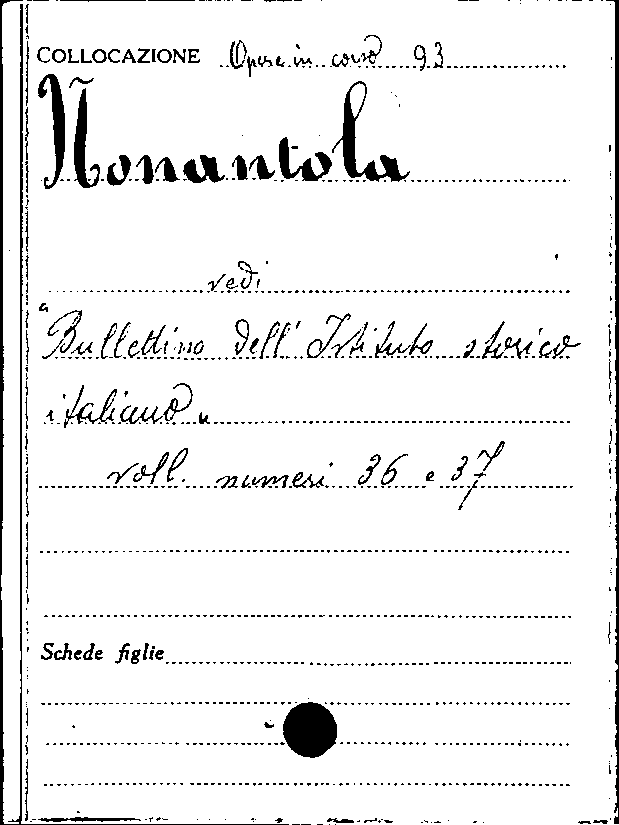 COLLOCAZIONE Opera in corso 93
Nonantola
vedi
"Bullettino dell' Istituto storico
italiano"
voll. numeri 36 e 37
Schede figlie